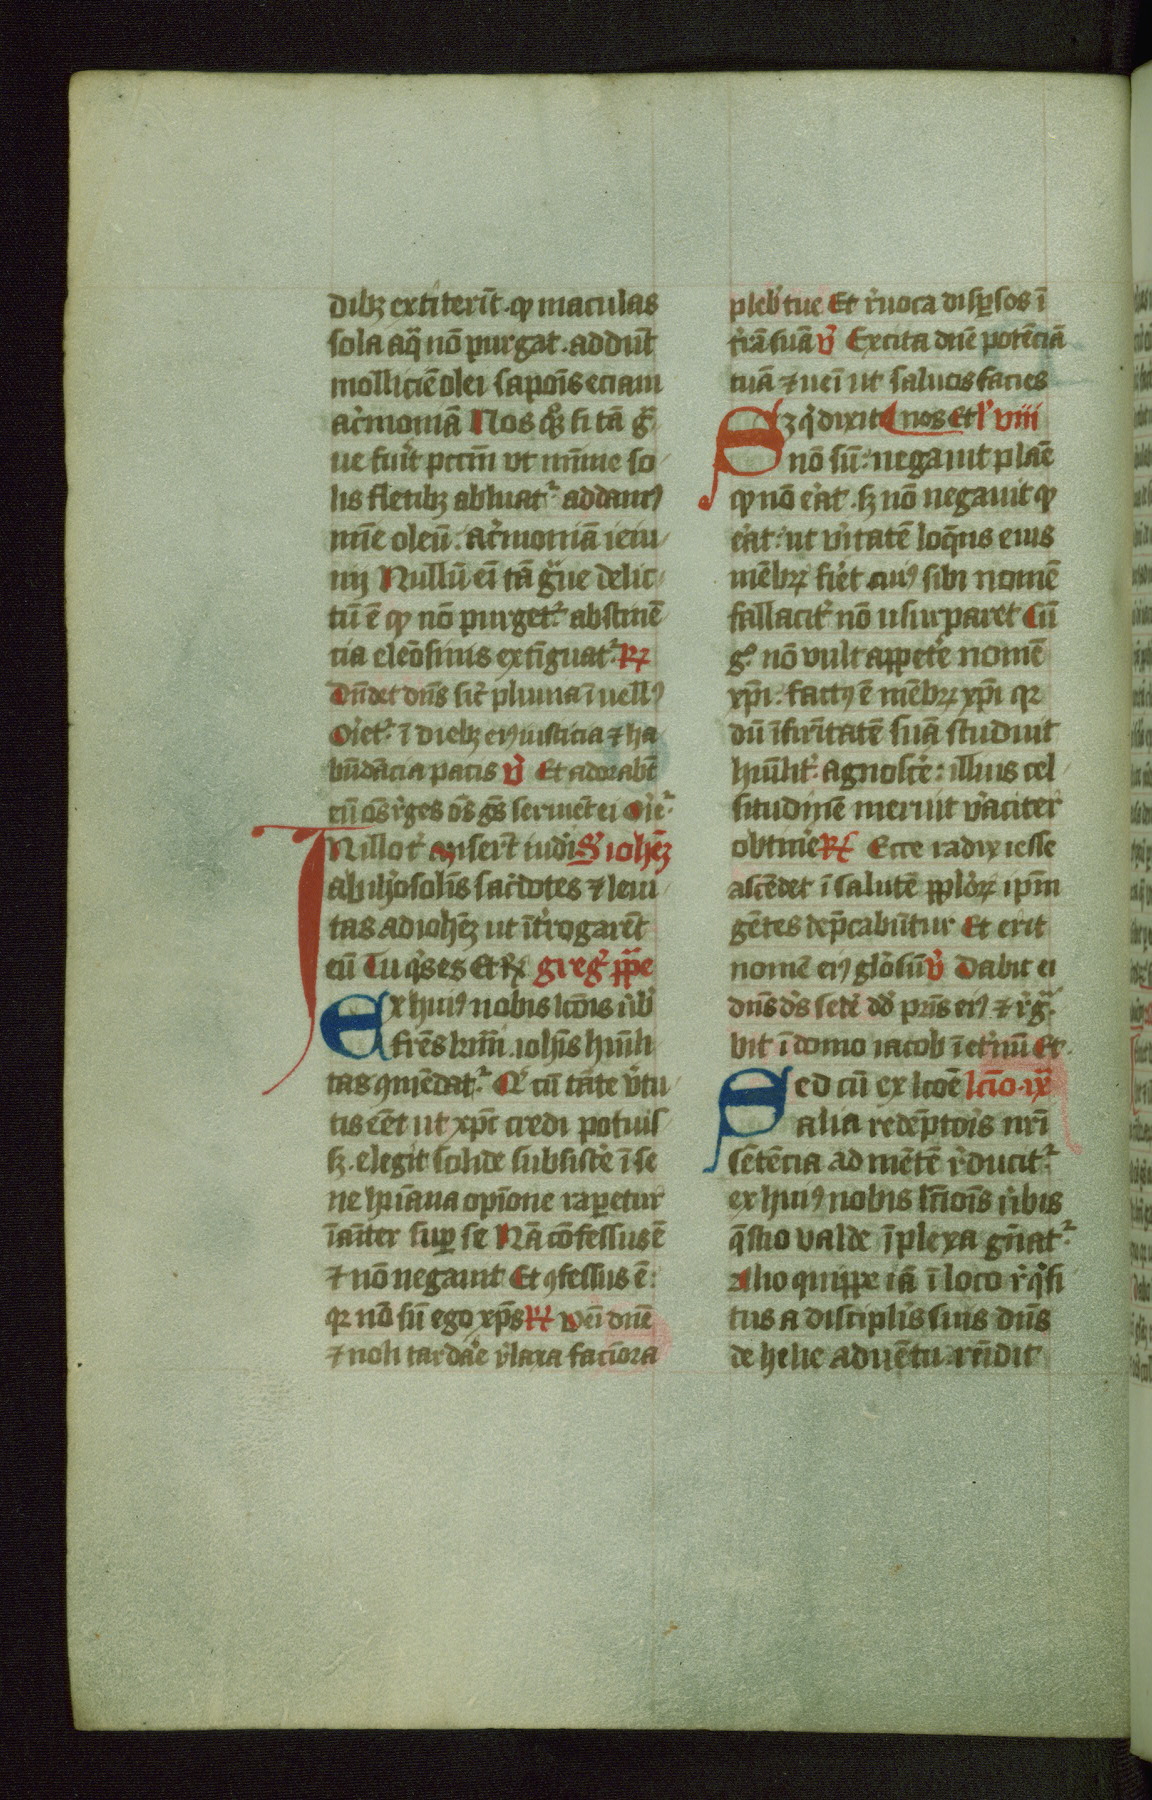 dibꝫ extiterīt · qꝫ maculas
sola aqᷓ nō purgat · addūt
molliciē olei saponis eciam
acͥmoniā Nos qͦqꝫ si tā gͣ
ue fuīt pccm̄ vt mīme so
lis fletibꝫ abluatᷣ addamꝰ
mīe oleū · acͥmoniā ieiu
nij Nullū eī tā gͣue delic
tū ē qꝫ nō purgetᷣ abstinē
cia eleōsinis extīguatᷣ Rꝝ
Dn̄det dn̄s sicͭ pluuia ī vellꝰ
Oͥetᷣ ī diebꝫ eiꝰ iusticia ⁊ ha
būdācia pacis v̉ Et adorabt̄
eū oēs rͤges oēs gēs seruiēt ei Oͥeᷣ
IN illo tꝑe miserūt iudei S iohēꝫ
ab iherosolis sacͤdotes ⁊ leui
tas ad iohēꝫ ut īt̉rogarēt
eū Tu qͥs es Et Rꝝ gregͦ ppͣe
Ex huiꝰ nobis lcōnis v̉bͥ
frēs kmī · iohīs hūili
tas 9mēdatᷣ Qͥ cū tāte v̉tu
tis eēt ut xpc̄ credi potuis
sꝫ · elegit solide subsistͤe ī se
ne hūana opīone raperetur
īaniter suꝑ se Nā cōfessus ē
⁊ nō negauit Et 9fessus ē ·
qꝛ nō sū ego xp̄s Rꝝ Veī dn̄e
⁊ noli tardaͬe r̉laxa facīora
plebͥ tue Et r̉uoca disꝑsos ī
t̉rā suā v̉ Excita dn̄e potēciā
tuā ⁊ ueī ut saluos facies
Sꝫ qͥ dixit nos Et lͦ viii
nō sū · negauit plaē
qꝫ nō eͬat · sꝫ nō negauit qꝫ
eͬat · ut v̉itatē loq̄ns eius
mēbrꝝ fiet cuiꝰ sibi nomē
fallacitᷣ nō usurparet Cū
gͦ nō vult appetͤe nomē
xpī · factꝰ ē mēbrꝝ xpī qꝛ
dū īfirītatē suā studuit
hūilitᷣ agnoscͤe · illius cel
situdinē meruit v̉aciter
obtinͤe Rꝝ Ecce radix iesse
ascēdet ī salutē ppl̄oꝝ ipm̄
gētes dep̄cabūtur Et erit
nomē eiꝰ glōsū v̉ Dabit ei
dn̄s dͤs sedē dd̄ pr̄is eiꝰ ⁊ rͤgͣ
bit ī domo iacob ī et̉nū Et
Sed cū ex lcōe lc̄io · ix
alia redēptoris nr̄i
sētēcia ad mētē rͤducitᷣ
ex huiꝰ nobis lc̄ionis v̉bis
q̄stio valde īplexa gn̄atᷣ
Alio quippe iā ī loco rͤqͥsi
tus a discipl̄is suis dn̄s
de helie aduētu · rn̄dit